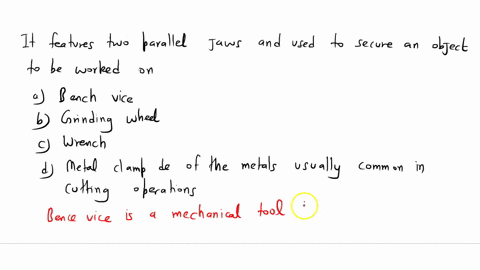 It features two parallel jaws and used to secure an object
to be worked on
a) Bench vice
b) Grinding wheel
c) Wrench
d) Metal clamp de of the metals usually common in
cutting operations
Bence vice is a mechanical tool